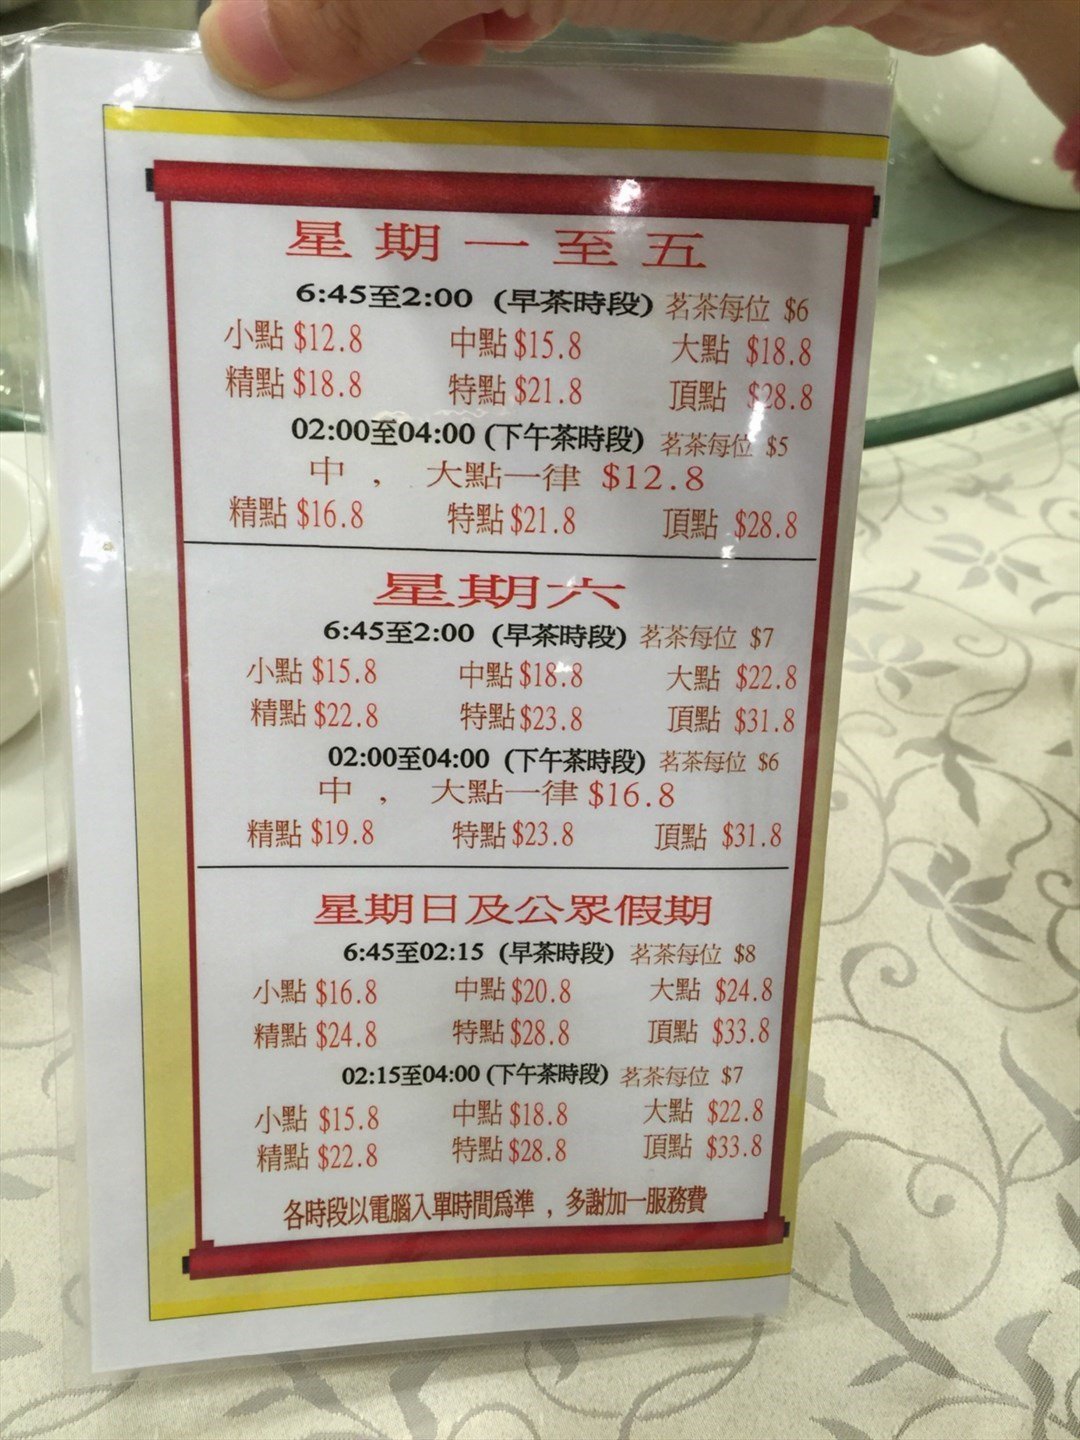 星期一至五
6:45至2:00 (早茶時段) 茗茶每位 $6
小點 $12.8 中點 $15.8 大點 $18.8
精點 $18.8 特點 $21.8 頂點 $28.8
02:00至04:00 (下午茶時段) 茗茶每位 $5
中， 大點一律 $12.8
精點 $16.8 特點 $21.8 頂點 $28.8
星期六
6:45至2:00 (早茶時段) 茗茶每位 $7
小點 $15.8 中點 $18.8 大點 $22.8
精點 $22.8 特點 $23.8 頂點 $31.8
02:00至04:00 (下午茶時段) 茗茶每位 $6
中， 大點一律 $16.8
精點 $19.8 特點 $23.8 頂點 $31.8
星期日及公眾假期
6:45至02:15 (早茶時段) 茗茶每位 $8
小點 $16.8 中點 $20.8 大點 $24.8
精點 $24.8 特點 $28.8 頂點 $33.8
02:15至04:00 (下午茶時段) 茗茶每位 $7
小點 $15.8 中點 $18.8 大點 $22.8
精點 $22.8 特點 $28.8 頂點 $33.8
各時段以電腦入單時間爲準，多謝加一服務費